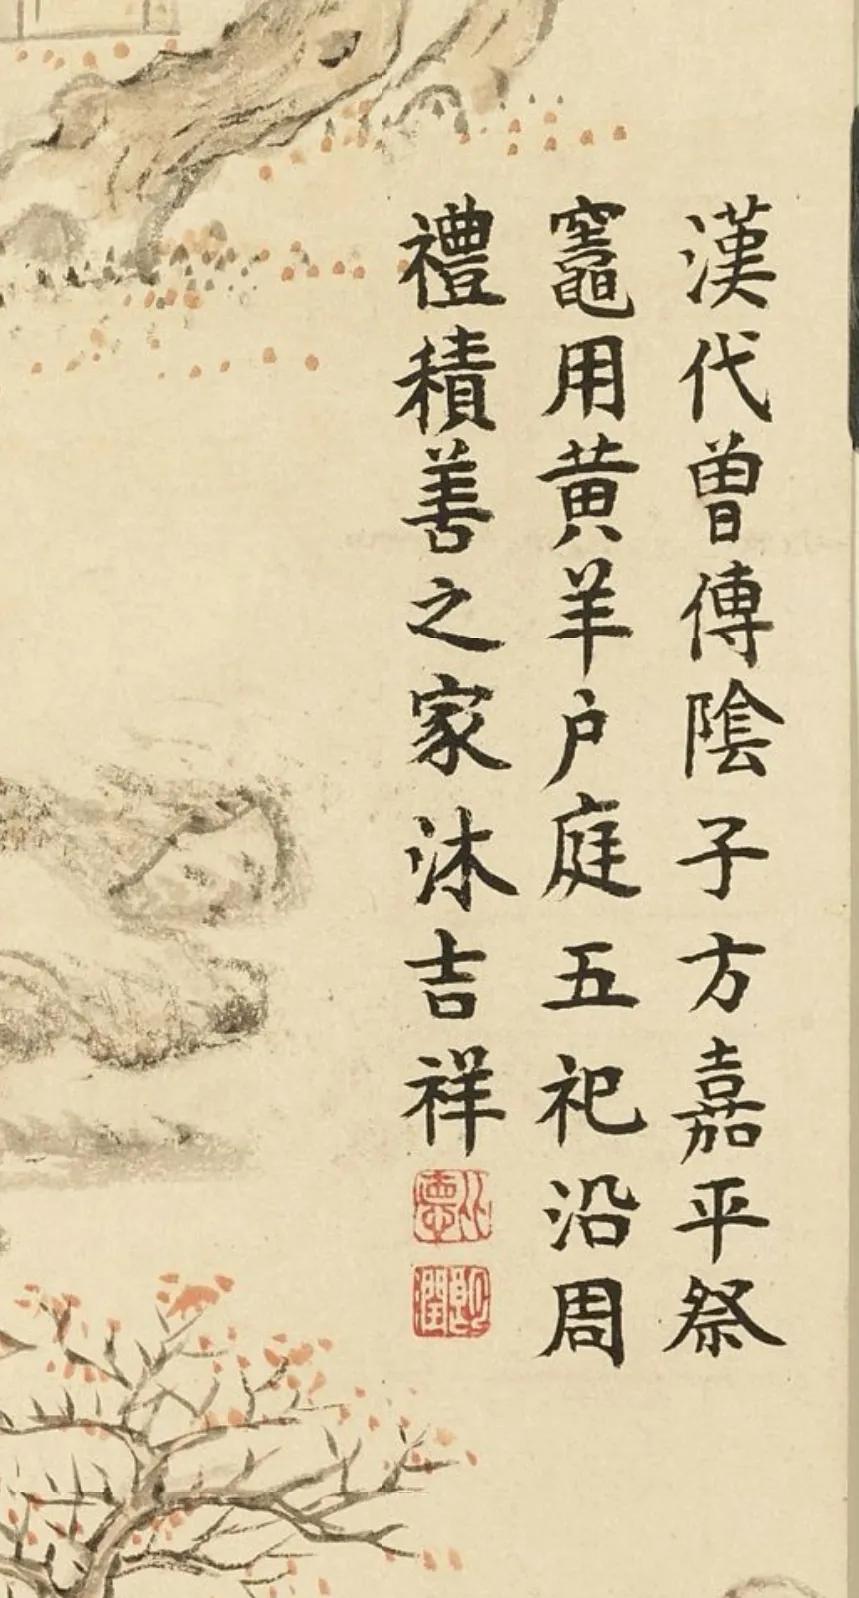 漢代曾傳陰子方嘉平祭
竈用黄羊户庭五祀沿周
禮積善之家沐吉祥